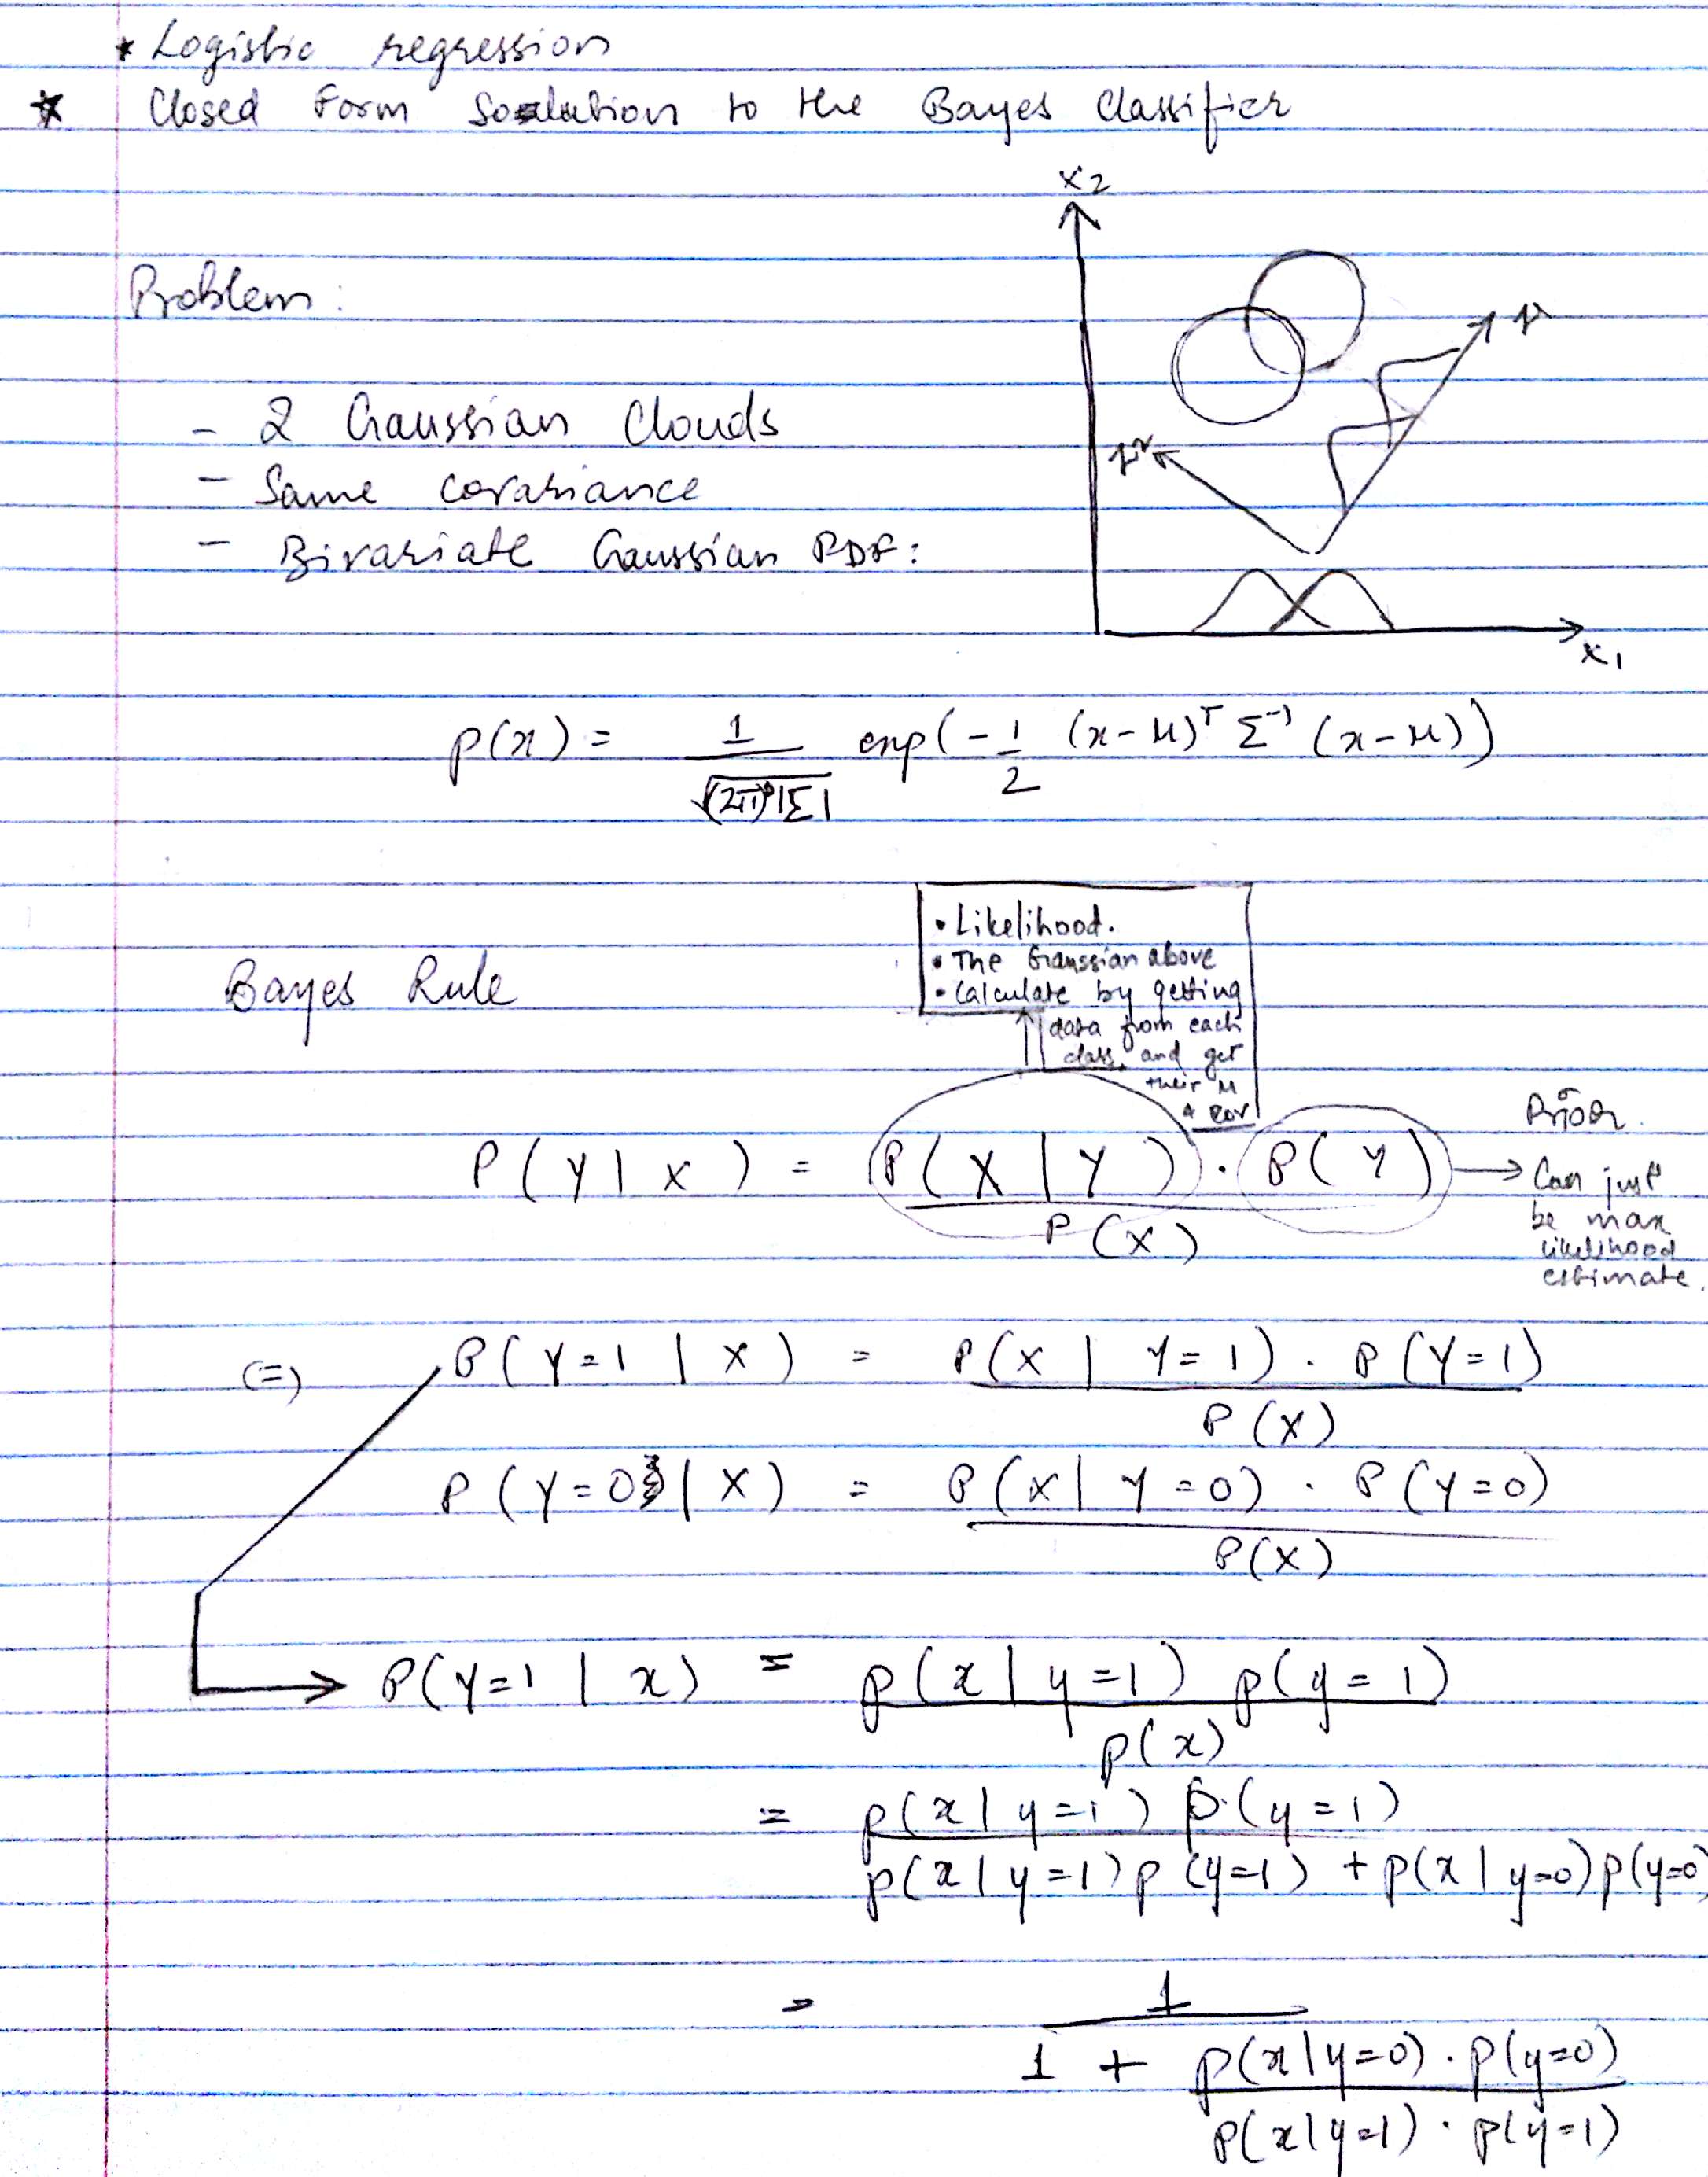 * Logistic regression
* Closed Form Solution to the Bayes Classifier
x2
Problem:
- 2 Gaussian Clouds
- Same covariance
- Bivariate Gaussian PDF:
x1
p(x) = 1/√((2π)ᴰ|Σ|) exp(-1/2 (x-μ)ᵀ Σ⁻¹ (x-μ))
• Likelihood.
• The Gaussian above
• Calculate by getting
data from each
class, and get
their μ
& cov
Bayes Rule
P(Y|X) = P(X|Y) . P(Y) / P(X)
→ Prior.
Can just
be max
likelihood
estimate.
(=) P(Y=1 | X) = P(X | Y=1) . P(Y=1) / P(X)
P(Y=0 | X) = P(X | Y=0) . P(Y=0) / P(X)
→ P(Y=1 | x) = p(x | y=1) p(y=1) / p(x)
= p(x | y=1) p(y=1) / p(x | y=1) p(y=1) + p(x | y=0) p(y=0)
= 1 / 1 + p(x|y=0) . p(y=0) / p(x|y=1) . p(y=1)